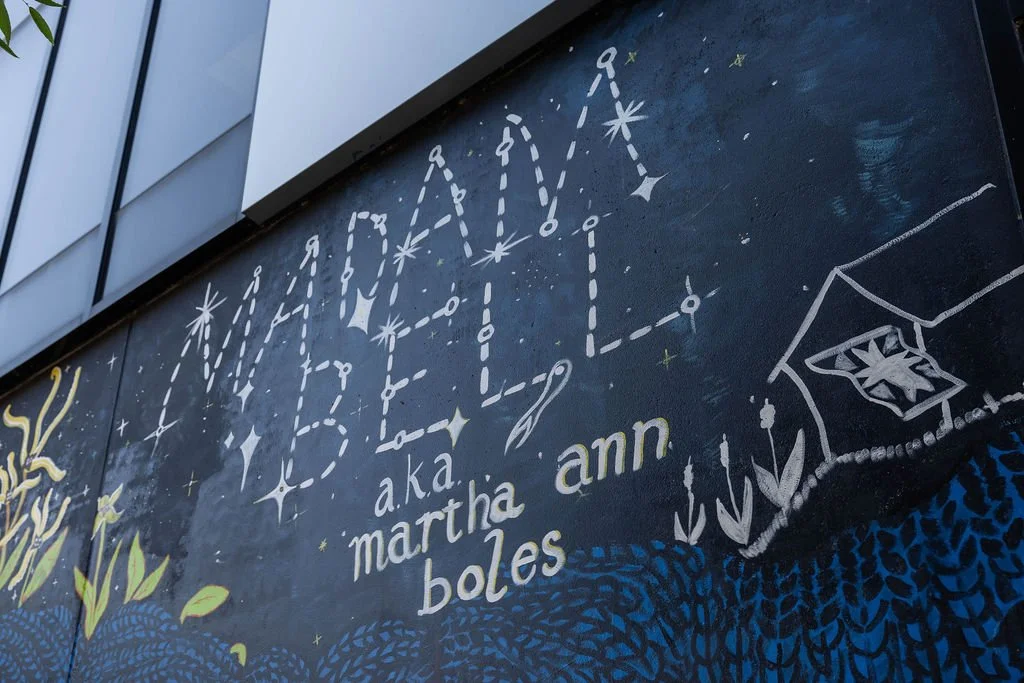 MADAM
BELL
aka
martha ann
boles